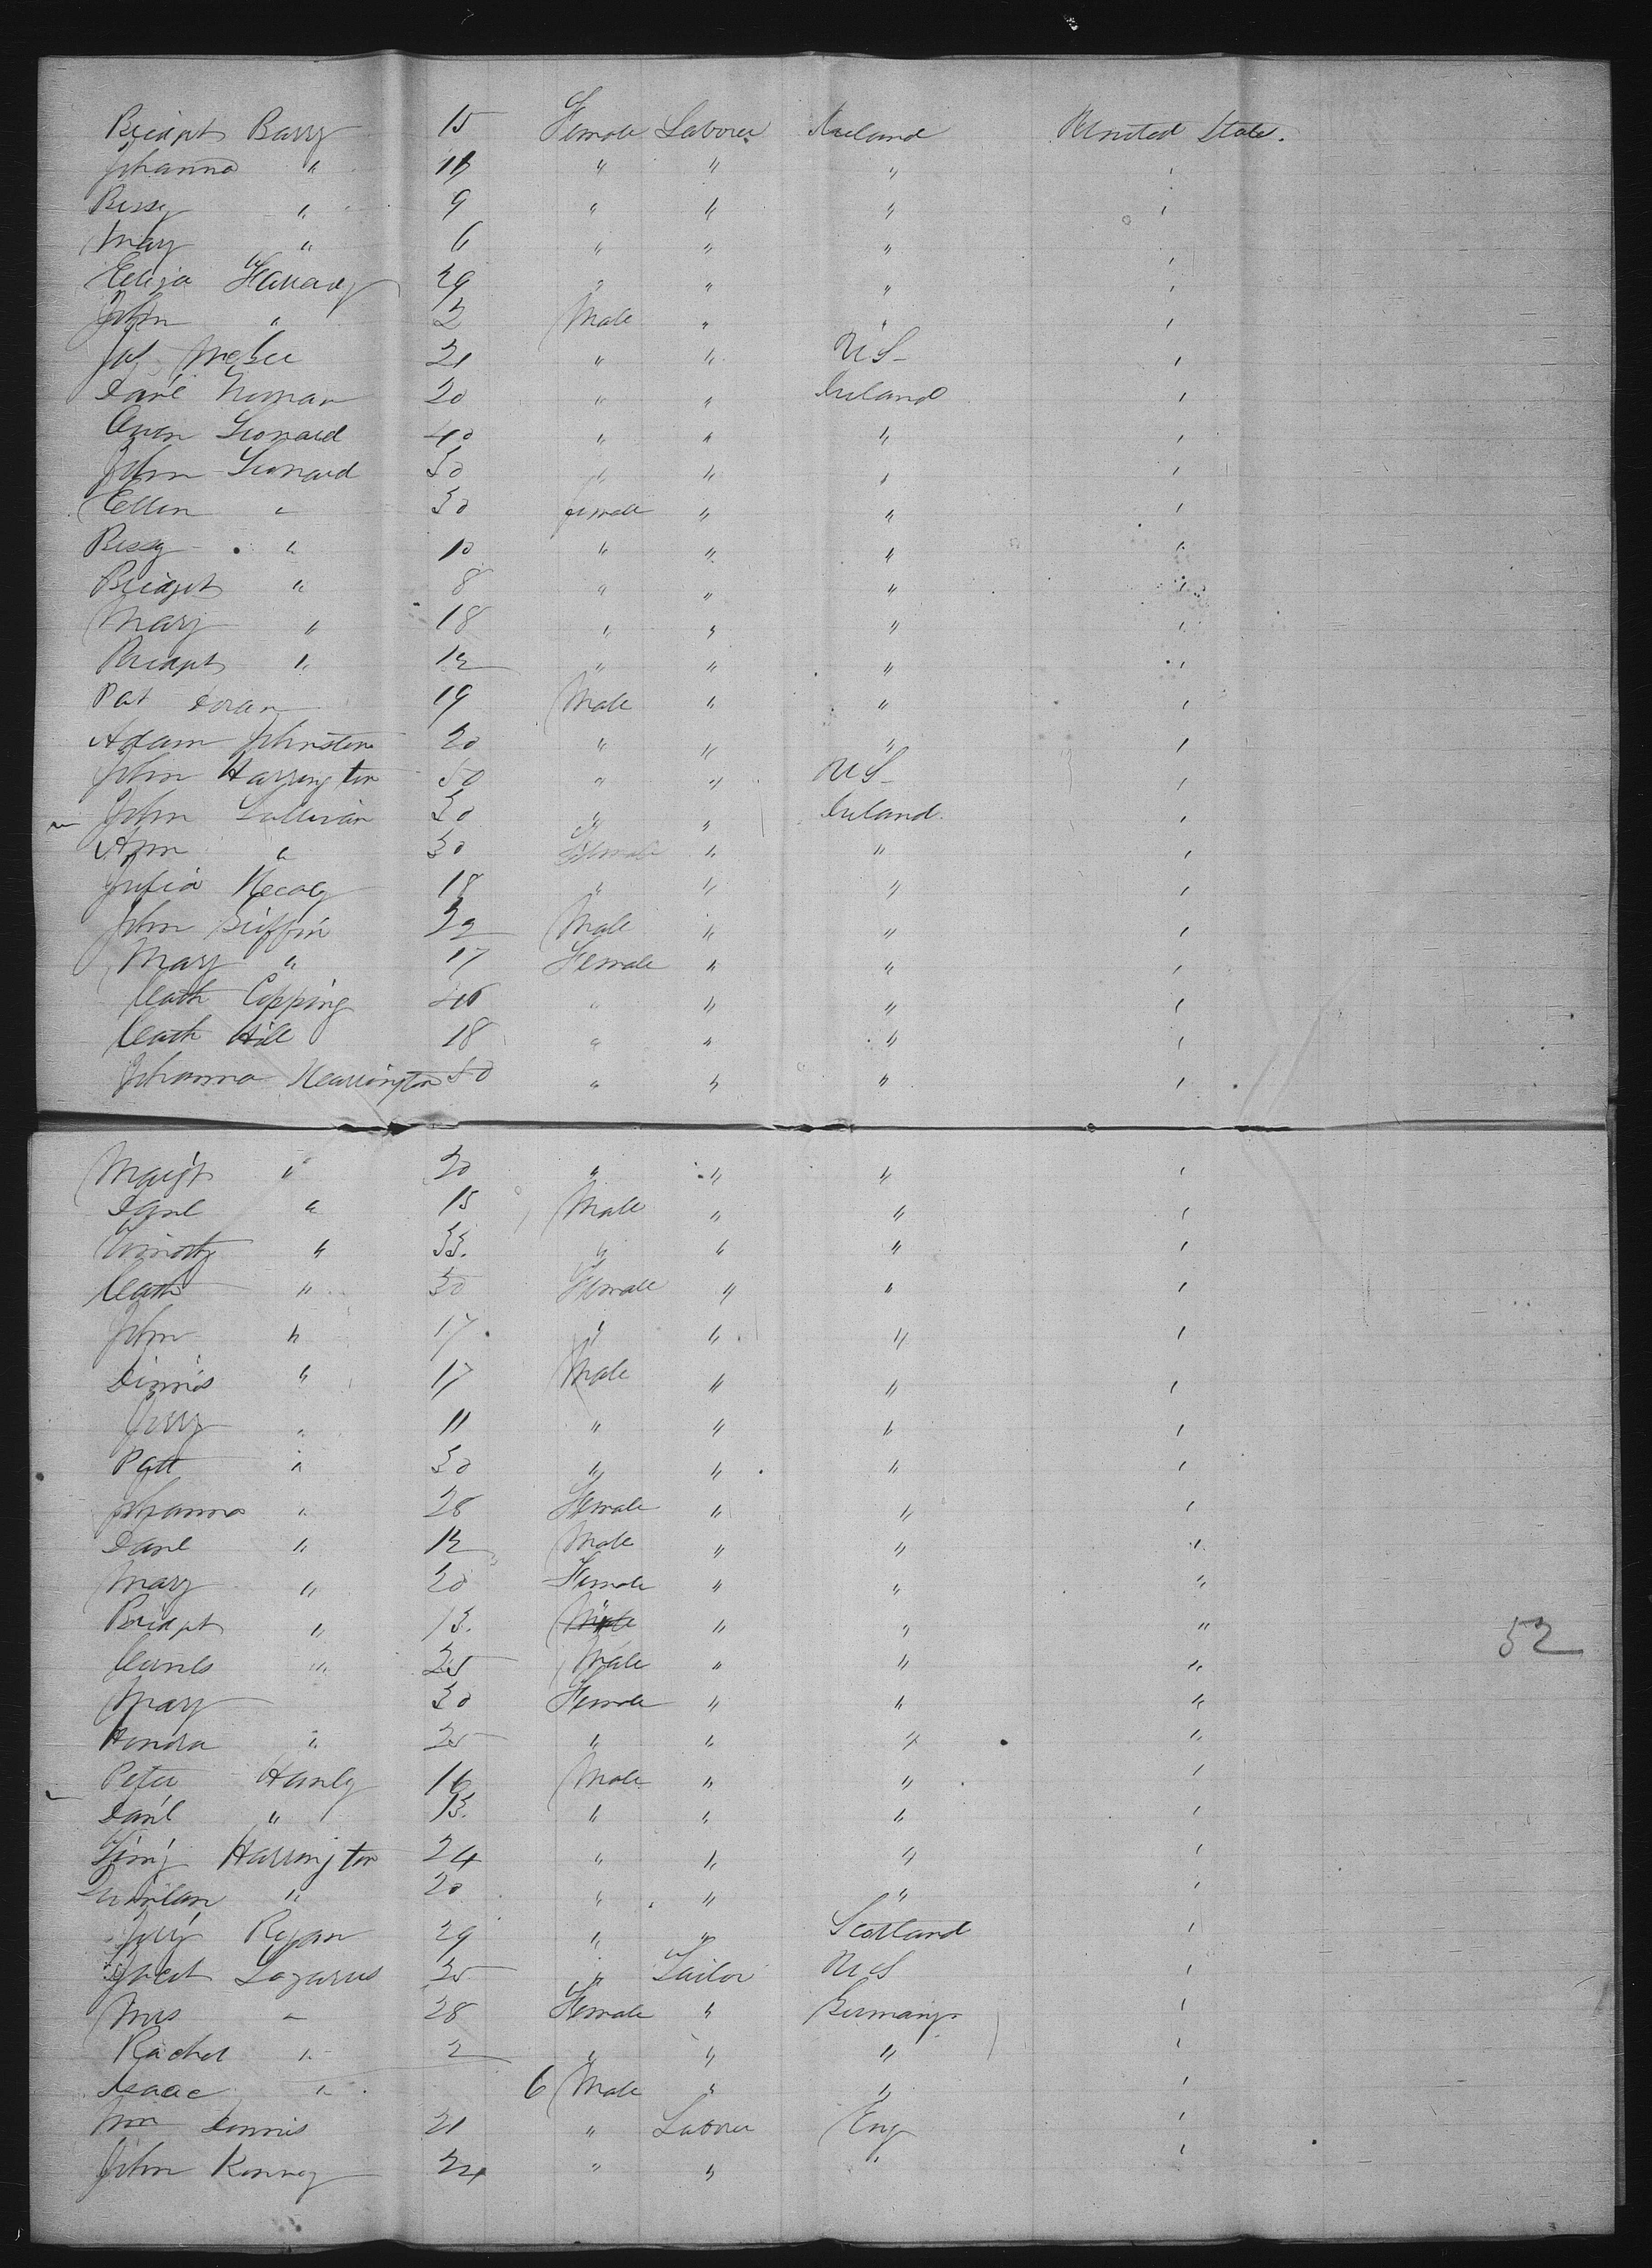 Bridget Barry 15 Female Laborer Ireland United States.
Johanna " 11 " " " "
Bessy " 9 " " " "
Mary " 6 " " " "
Eliza 29 " " " "
John " 2 Male " " "
Jas McGee 21 " " U S "
Danl 20 " " Ireland "
Owen Leonard 40 " " " "
John Leonard 50 " " " "
Ellen " 30 female " " "
Bessy " 10 " " " "
Bridget " 8 " " " "
Mary " 18 " " " "
Bridget " 12 " " " "
Pat Doran 19 Male " " "
Adam Johnston 20 " " " "
John Harrington 50 " " U S "
John Sullivan 30 " " Ireland "
Ann " 30 Female " " "
Julia 18 " " " "
John Griffin 22 Male " " "
Mary " 17 Female " " "
Cath Copping 46 " " " "
Cath Hill 18 " " " "
Johanna Harrington 50 " " " "
Margt " 20 " " " "
Danl " 15 Male " " "
Timothy " 33. " " " "
Cath " 30 Female " " "
John " 17 " " " "
Dinnis " 17 Male " " "
Jerry " 11 " " " "
Patt " 30 " " " "
Johanna " 28 Female " " "
Danl " 12 Male " " "
Mary " 20 Female " " "
Bridget " 13. Male " " "
" 25 Male " " "
Mary 30 Female " " "
Honora " 25 " " " "
Peter Hanly 16 Male " " "
Danl " 13. " " " "
Timy Harrington 24 " " " "
" 20 " " " "
Jerry Regan 29 " " Scotland "
Lazarus 35 " Tailor U S "
Mrs " 28 Female " Germany "
Rachel " 2 " " " "
Isaac " 6 Male " " "
Wm Dennis 21 " Laborer Eng "
John Kenney 24 " " " "
52